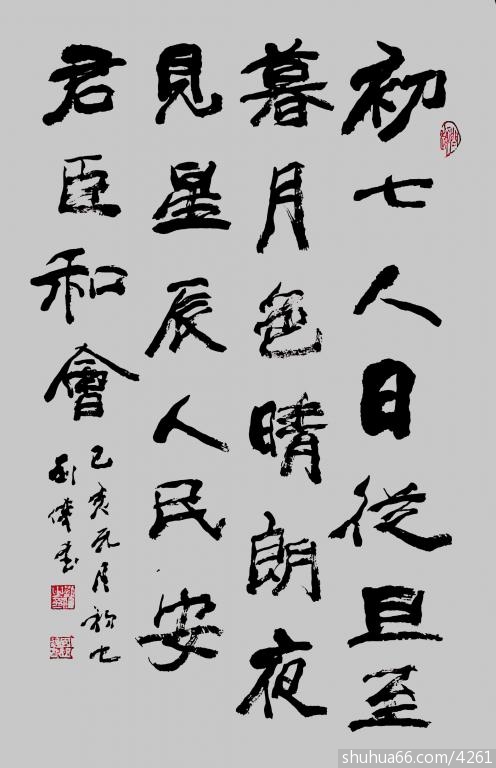 初七人日從旦至
暮月色晴朗夜
見星辰人民安
君臣和會
己亥元月初七
書
shuhua66.com/4261